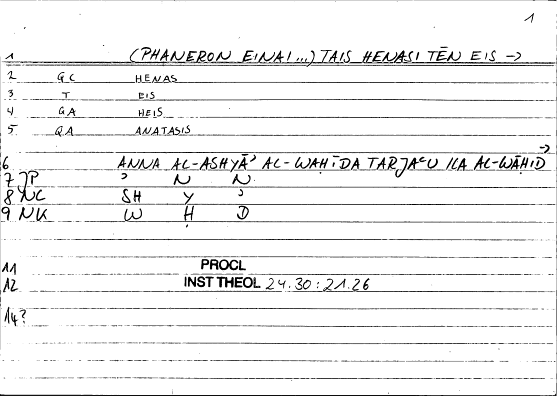 1
1 (PHANERON EINAI...) TAIS HENASI TĒN EIS →
2 GC HENAS
3 T EIS
4 GA HEIS
5 QA ANATASIS
→
6 ANNA AL-ASHYĀʾ AL-WAḤIDA TARJAʿU ILA AL-WĀḤID
7 JP ʾ N N
8 NC SH Y ʾ
9 NK W Ḥ D
11 PROCL
12 INST THEOL 24.30:21.26
14?